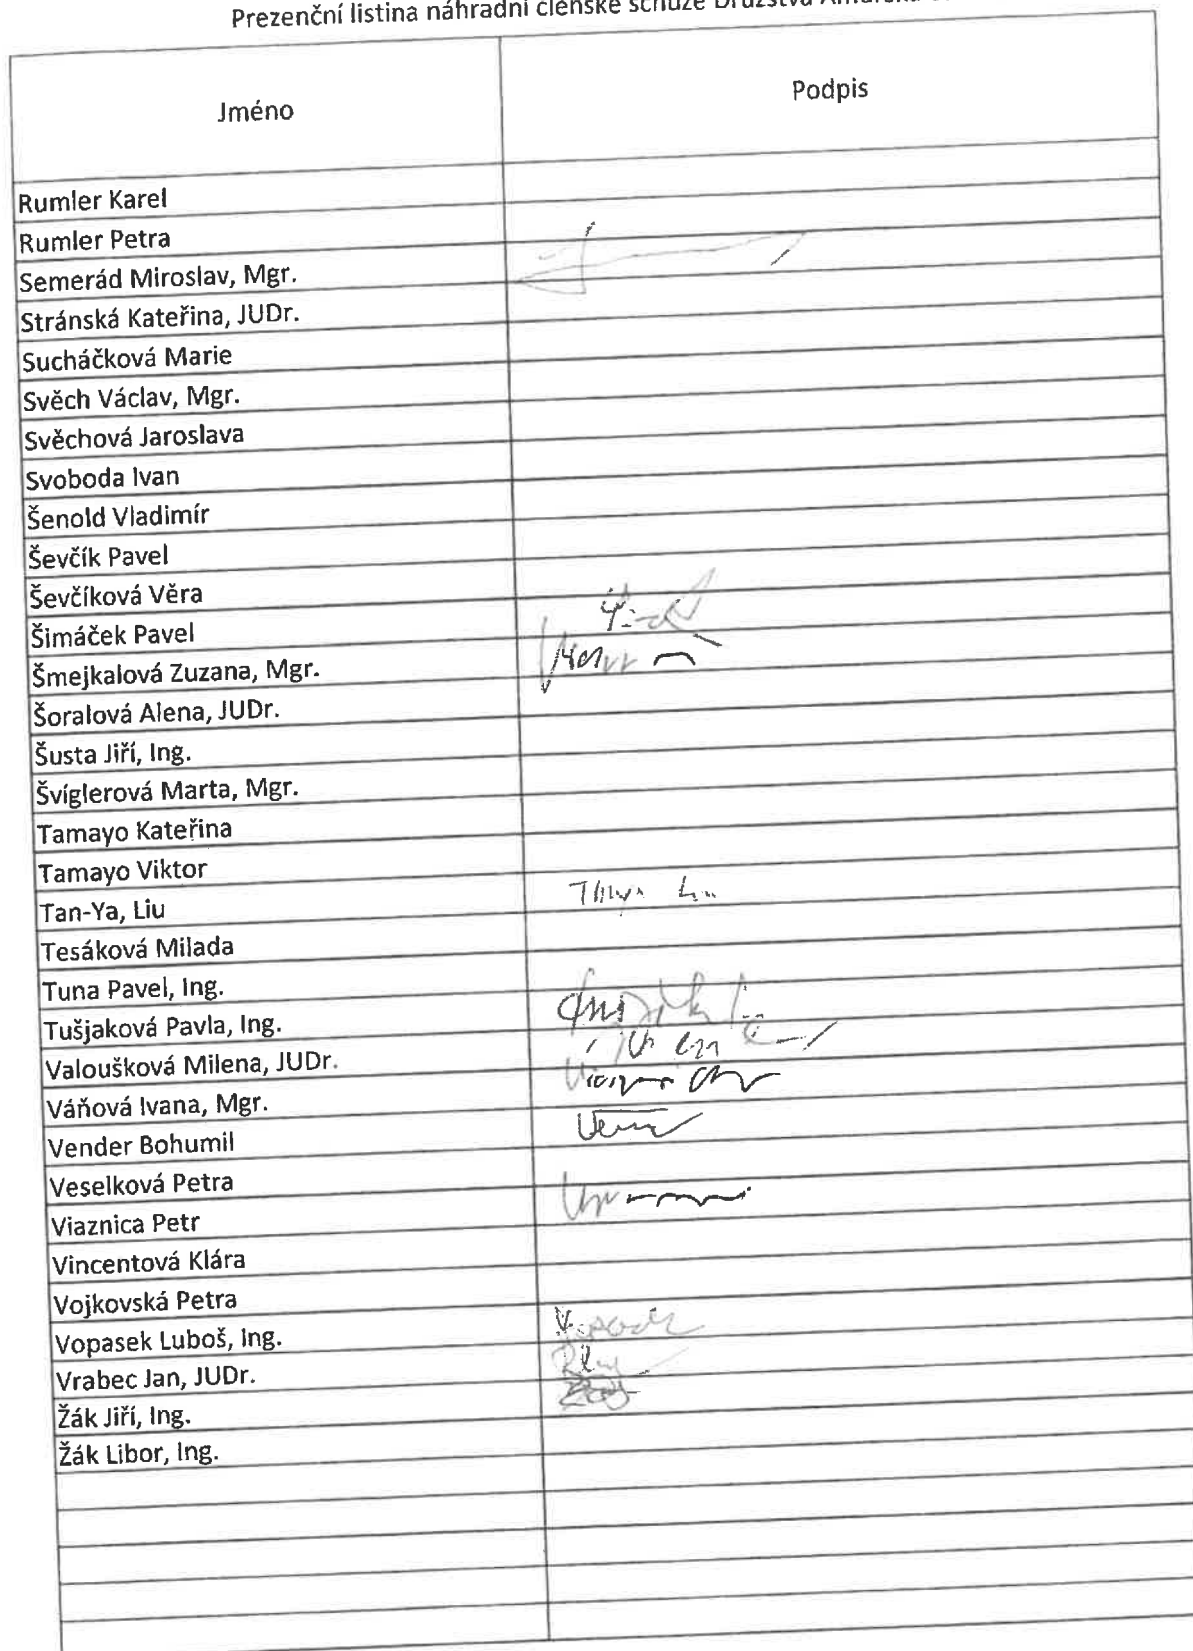 Prezenční listina náhradní členské schůze Družstva
Jméno
Podpis
Rumler Karel
Rumler Petra
Semerád Miroslav, Mgr.
Stránská Kateřina, JUDr.
Sucháčková Marie
Svěch Václav, Mgr.
Svěchová Jaroslava
Svoboda Ivan
Šenold Vladimír
Ševčík Pavel
Ševčíková Věra
Šimáček Pavel
Šmejkalová Zuzana, Mgr.
Šoralová Alena, JUDr.
Šusta Jiří, Ing.
Švíglerová Marta, Mgr.
Tamayo Kateřina
Tamayo Viktor
Tan-Ya, Liu
Tesáková Milada
Tuna Pavel, Ing.
Tušjaková Pavla, Ing.
Valoušková Milena, JUDr.
Váňová Ivana, Mgr.
Vender Bohumil
Veselková Petra
Viaznica Petr
Vincentová Klára
Vojkovská Petra
Vopasek Luboš, Ing.
Vrabec Jan, JUDr.
Žák Jiří, Ing.
Žák Libor, Ing.